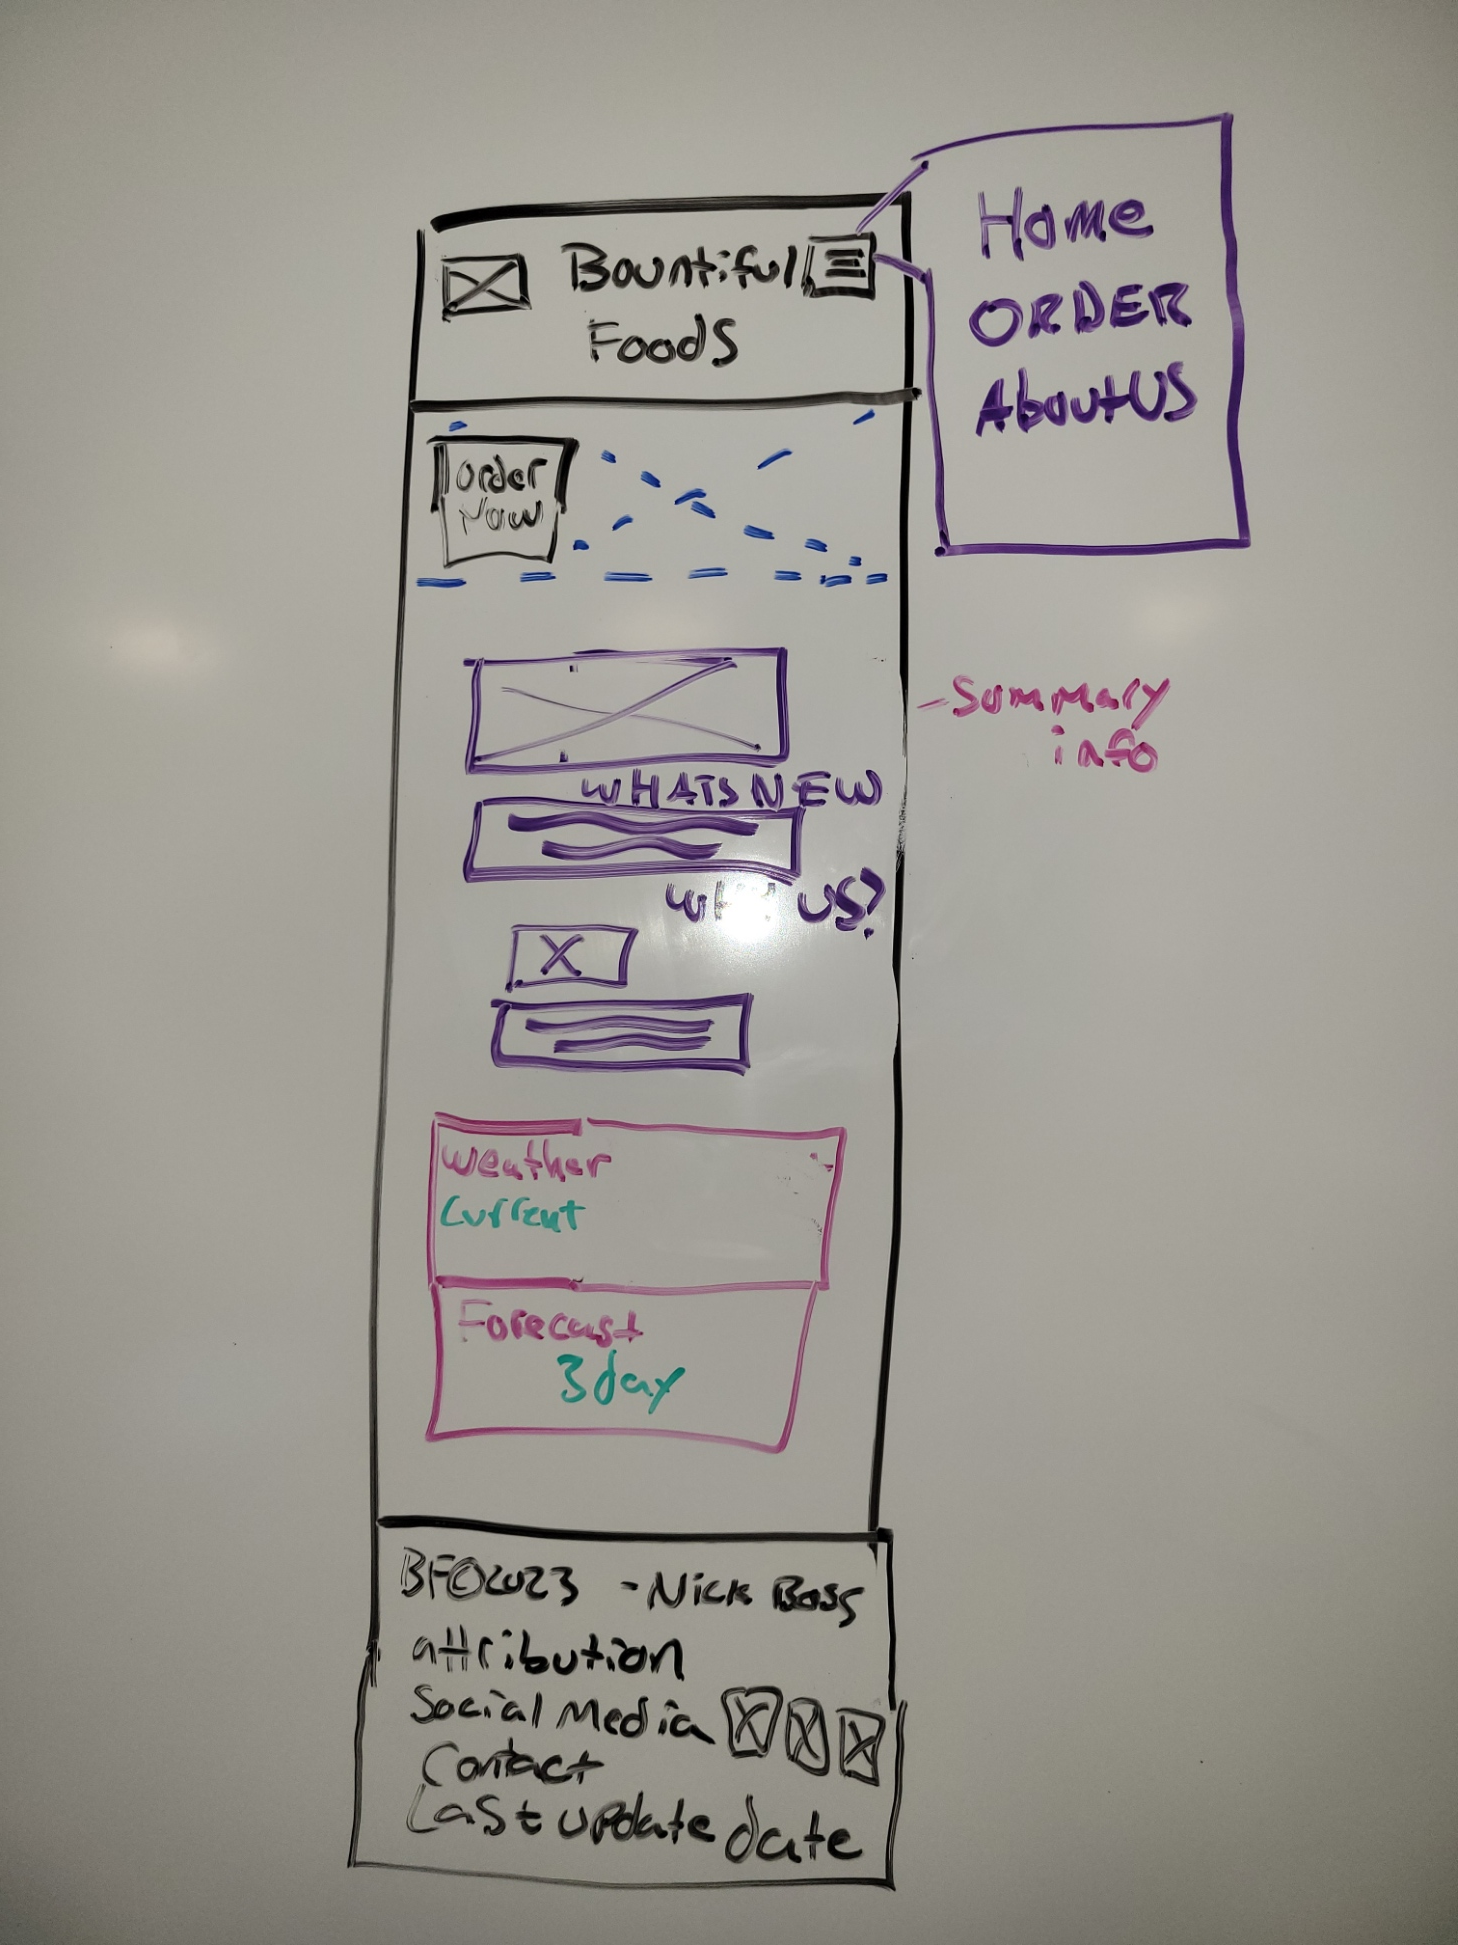 Bountiful
Foods
Home
ORDER
About US
Order
Now
Summary
info
WHATS NEW
US?
Weather
Current
Forecast
3 day
BF©2023 - Nick Bass
attribution
Social Media
Contact
Last update date